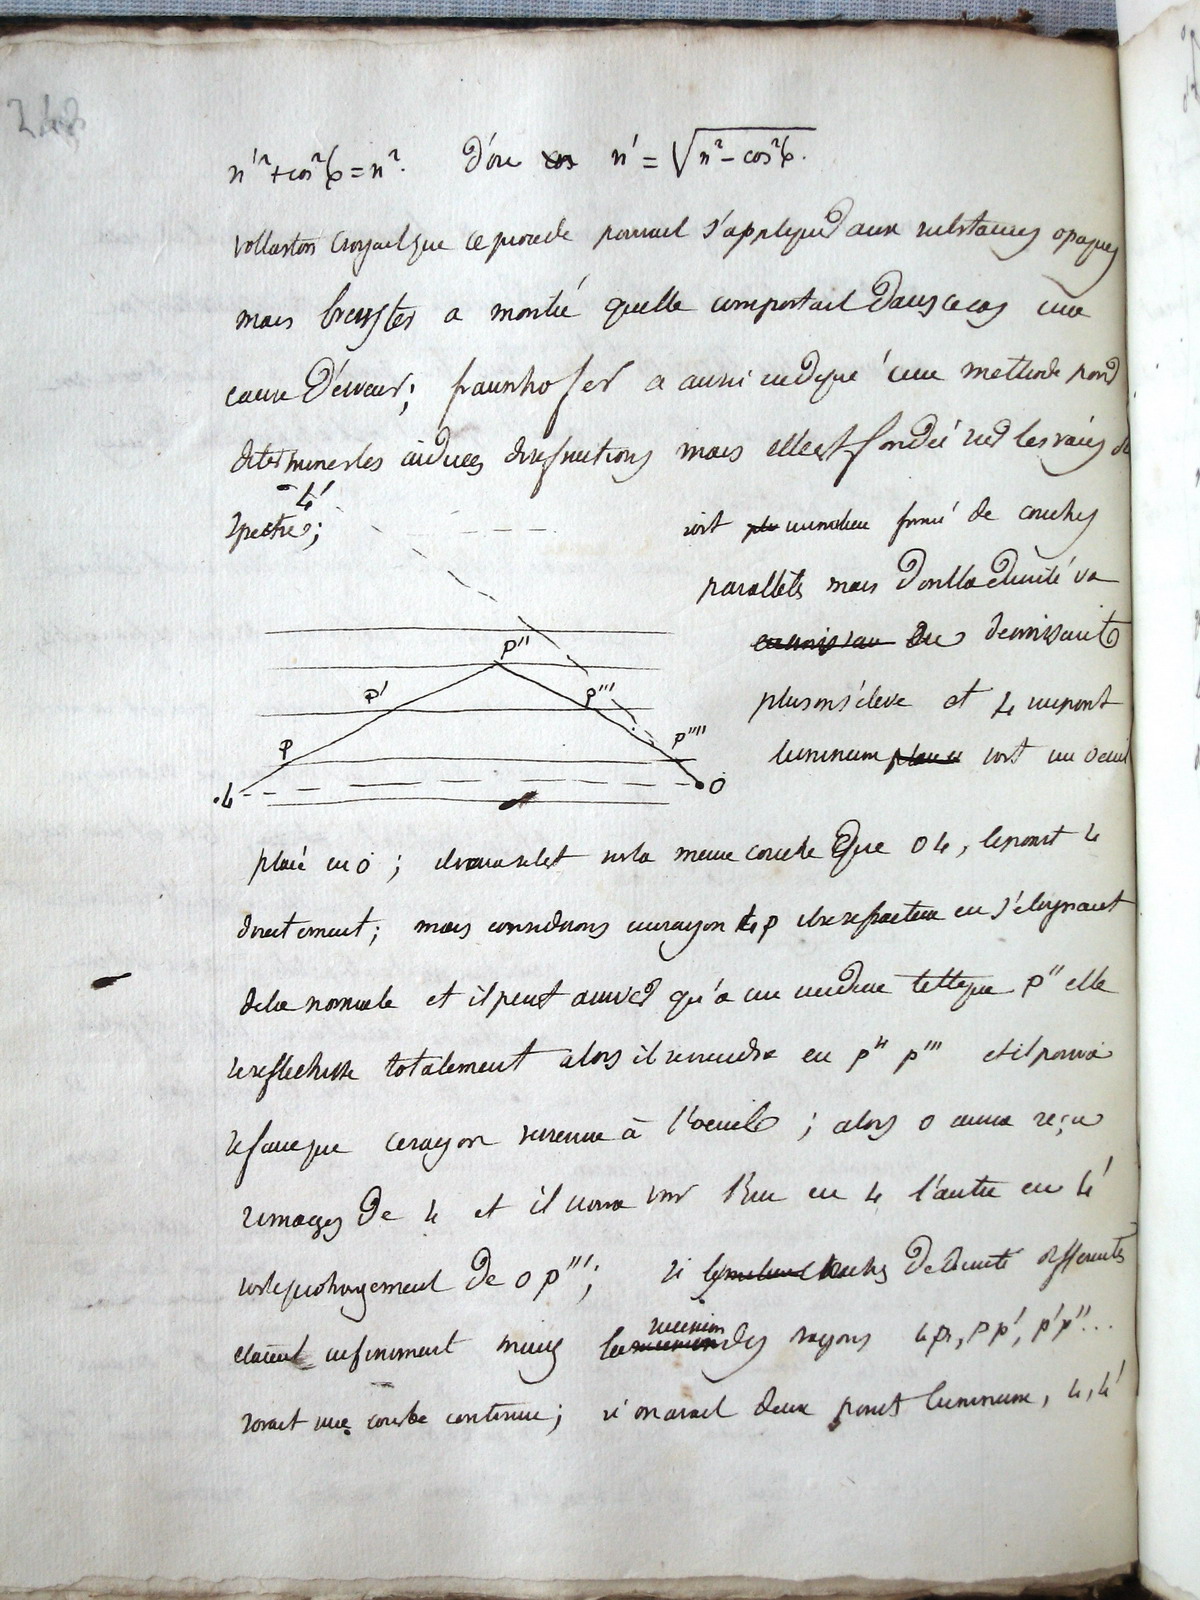 248
n'² + cos²6 = n². d'où cos n' = √n² - cos²6.
vollaston croyait que ce procede pourrait s'appliquer aux substances opaques
mais brewster a montré quelle comportait dans ce cas une
cause d'erreur; fraunhofer a aussi indiqué une methode pour
determiner les indices de refractions mais elle est fondée sur les raies du
spectre;
soit un milieu formé de couches
paralleles mais dont la densité va
en diminuant
plus on s'eleve et L un point
lumineux soit un oeuil
placé en O; il verra sur la meme couche que OL, le point L
directement; mais considerons un rayon Lp il se refractera en s'eloignant
de la normale et il peut arriver qu'a un indice tel que p'' elle
se reflechisse totalement alors il reviendra en p'' p''' et il pourra
se faire que ce rayon revienne à l'oeuil; alors O aura reçu
2 images de L et il verra l'une en L l'autre en L'
sur le prolongement de O p''''; si les couches de densité differentes
etaient infiniment minces la reunion des rayons Lp, pp', p'p''...
serait une courbe continue; si on avait deux points lumineux, L, L'
L'
p''
p'
p'''
p
p''''
L
O